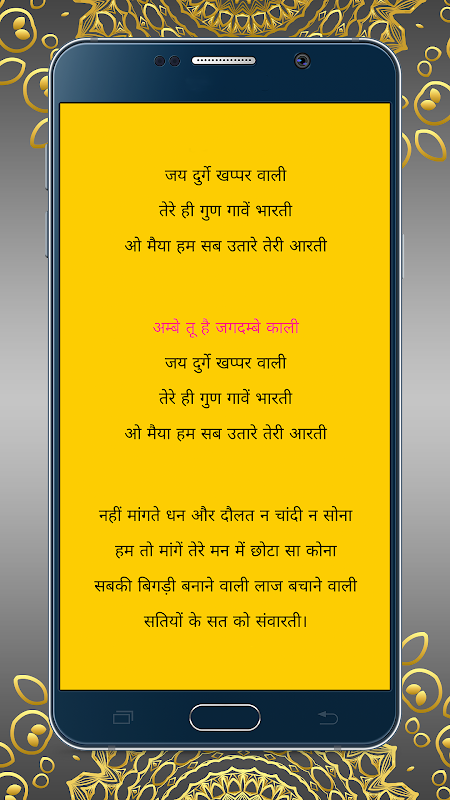 जय दुर्गे खप्पर वाली
तेरे ही गुण गावें भारती
ओ मैया हम सब उतारे तेरी आरती
अम्बे तू है जगदम्बे काली
जय दुर्गे खप्पर वाली
तेरे ही गुण गावें भारती
ओ मैया हम सब उतारे तेरी आरती
नहीं मांगते धन और दौलत न चांदी न सोना
हम तो मांगें तेरे मन में छोटा सा कोना
सबकी बिगड़ी बनाने वाली लाज बचाने वाली
सतियों के सत को संवारती।